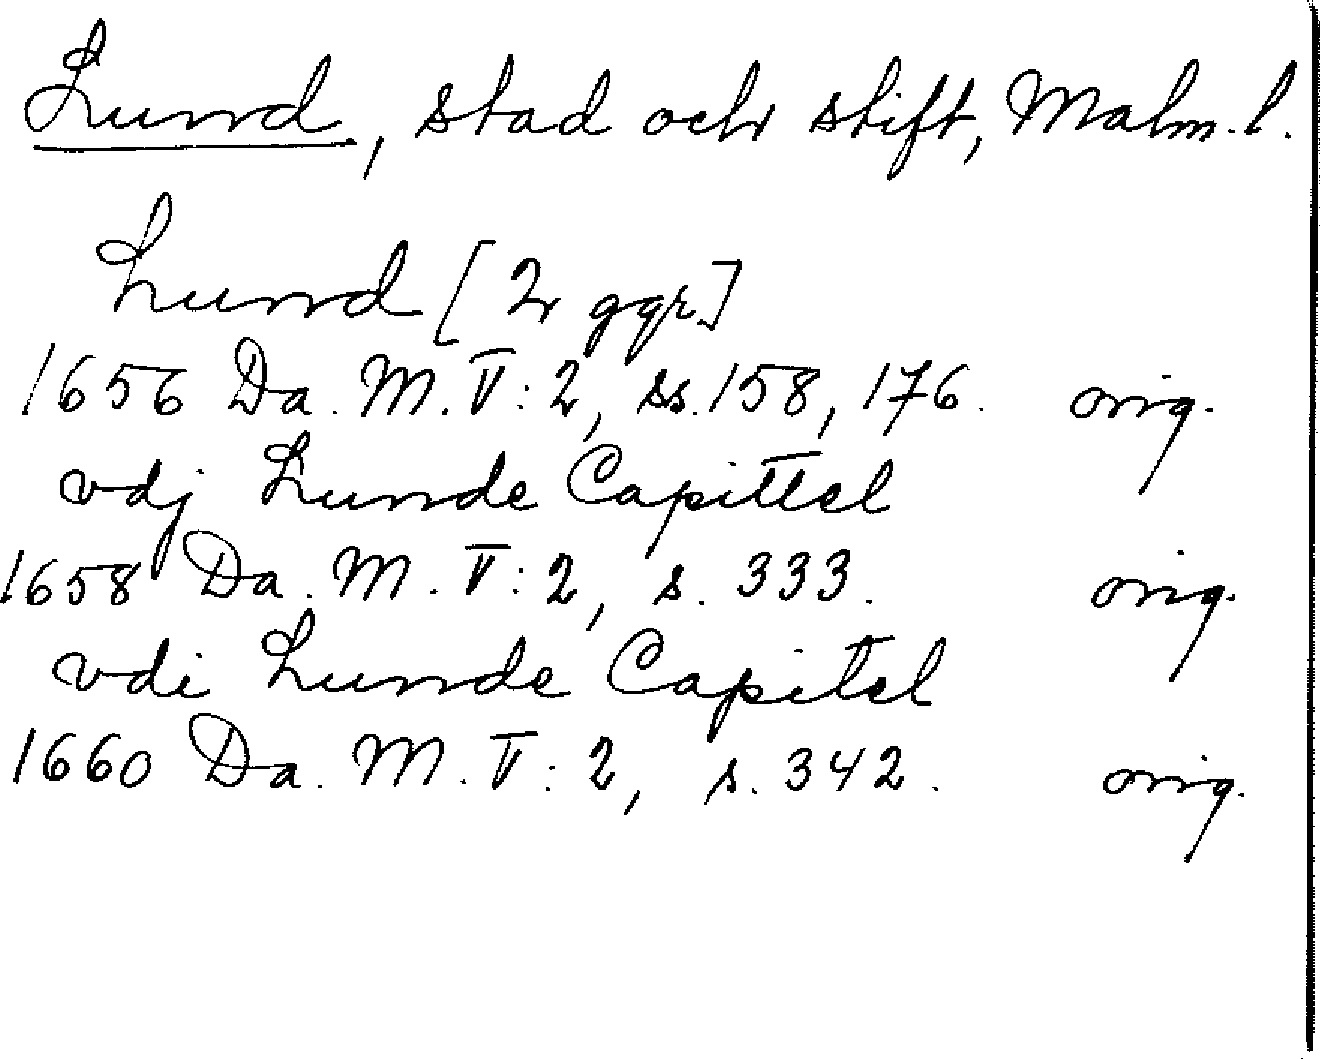 Lund, stad och stift, Malm. l.
Lund [2 ggr.]
1656 Da. M. V: 2, ss. 158, 176. orig.
vdj Lunde Capittel
1658 Da. M. V: 2, s. 333. orig.
vdi Lunde Capitel
1660 Da. M. V: 2, s. 342. orig.